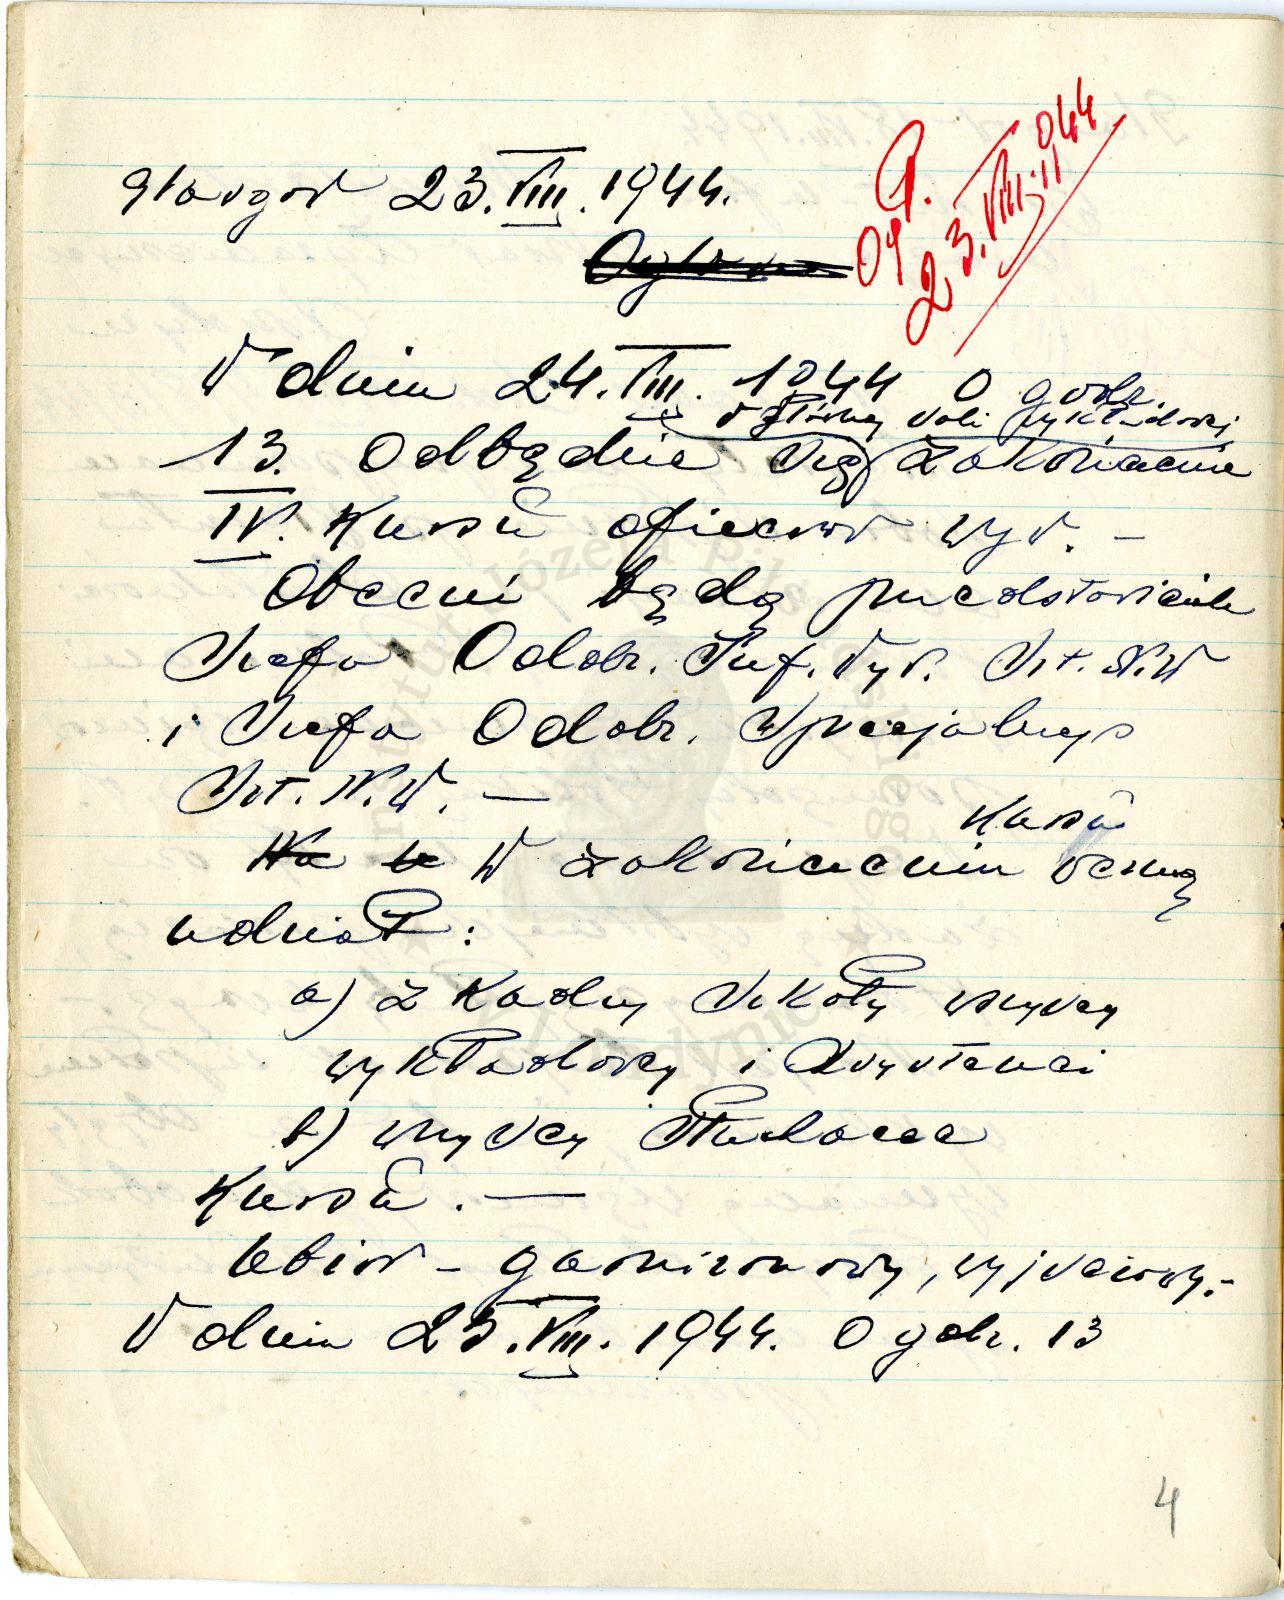 Glasgow 23.VIII.1944.
Og. 23.VIII.1944
W dniu 24.VIII. 1944 o godz.
w głównej sali wykładowej
13. Odbędzie się zakończenie
IV. Kursu oficerów wyw. –
Obecni będą przedstawiciele
Szefa Oddz. Inf. Wyw. Szt. N.W
i Szefa Oddz. Specjalnego
Szt. N.W. —
W zakończeniu kursu wezmą
udział:
a) z Kadry Szkoły wszyscy
wykładowcy i asystenci
b) wszyscy słuchacze
Kursu. —
Ubiór – garnizonowy, wyjściowy.–
W dniu 25.VIII. 1944. o godz. 13
4
Instytut Józefa Piłsudskiego